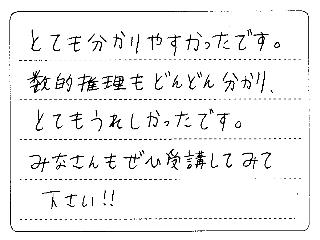 とても分かりやすかったです。
数的推理もどんどん分かり、
とてもうれしかったです。
みなさんもぜひ受講してみて
下さい!!